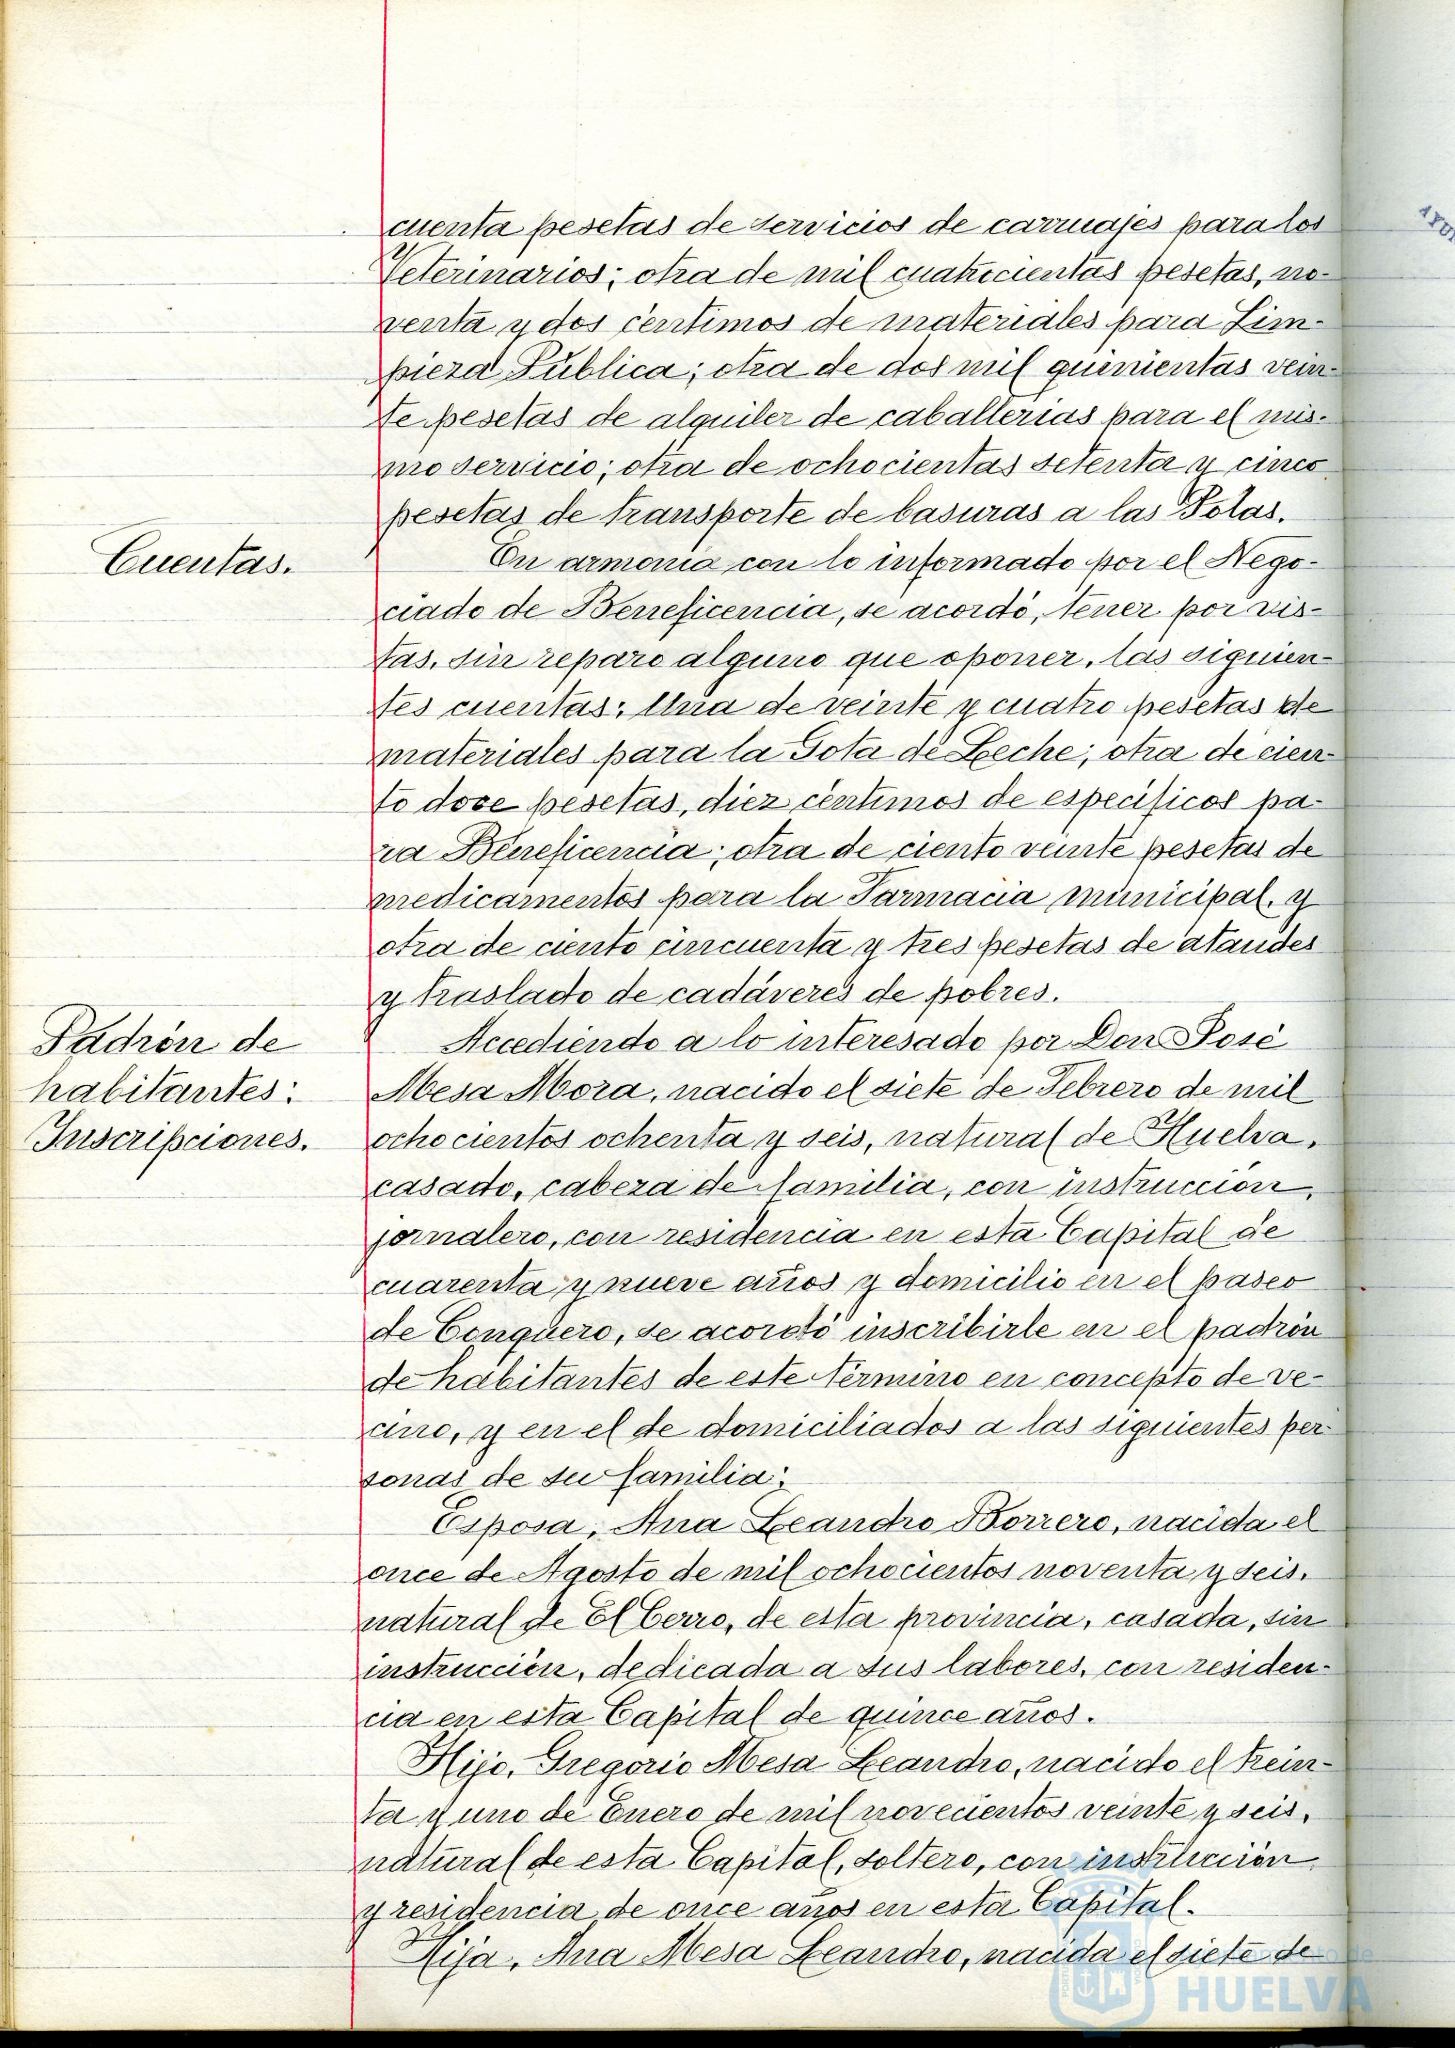 cuenta pesetas de servicios de carruajes para los
Veterinarios; otra de mil cuatrocientas pesetas, no-
venta y dos céntimos de materiales para Lim-
pieza Pública; otra de dos mil quinientas vein-
te pesetas de alquiler de caballerias para el mis-
mo servicio; otra de ochocientas setenta y cinco
pesetas de transporte de basuras a las Polas.
Cuentas.
En armonia con lo informado por el Nego-
ciado de Beneficencia, se acordó, tener por vis-
tas, sin reparo alguno que oponer, las siguien-
tes cuentas: Una de veinte y cuatro pesetas de
materiales para la Gota de Leche; otra de cien-
to doce pesetas, diez céntimos de especificos pa-
ra Beneficencia; otra de ciento veinte pesetas de
medicamentos para la Farmacia municipal, y
otra de ciento cincuenta y tres pesetas de ataudes
y traslado de cadáveres de pobres.
Padrón de
habitantes:
Inscripciones.
Accediendo a lo interesado por Don José
Mesa Mora, nacido el siete de Febrero de mil
ochocientos ochenta y seis, natural de Huelva,
casado, cabeza de familia, con instrucción,
jornalero, con residencia en esta Capital de
cuarenta y nueve años y domicilio en el paseo
de Conquero, se acordó inscribirle en el padrón
de habitantes de este término en concepto de ve-
cino, y en el de domiciliados a las siguientes per-
sonas de su familia:
Esposa, Ana Leandro Borrero, nacida el
once de Agosto de mil ochocientos noventa y seis,
natural de El Cerro, de esta provincia, casada, sin
instrucción, dedicada a sus labores, con residen-
cia en esta Capital de quince años.
Hijo, Gregorio Mesa Leandro, nacido el trein-
ta y uno de Enero de mil novecientos veinte y seis,
natural de esta Capital, soltero, con instrucción,
y residencia de once años en esta Capital.
Hija, Ana Mesa Leandro, nacida el siete de
HUELVA